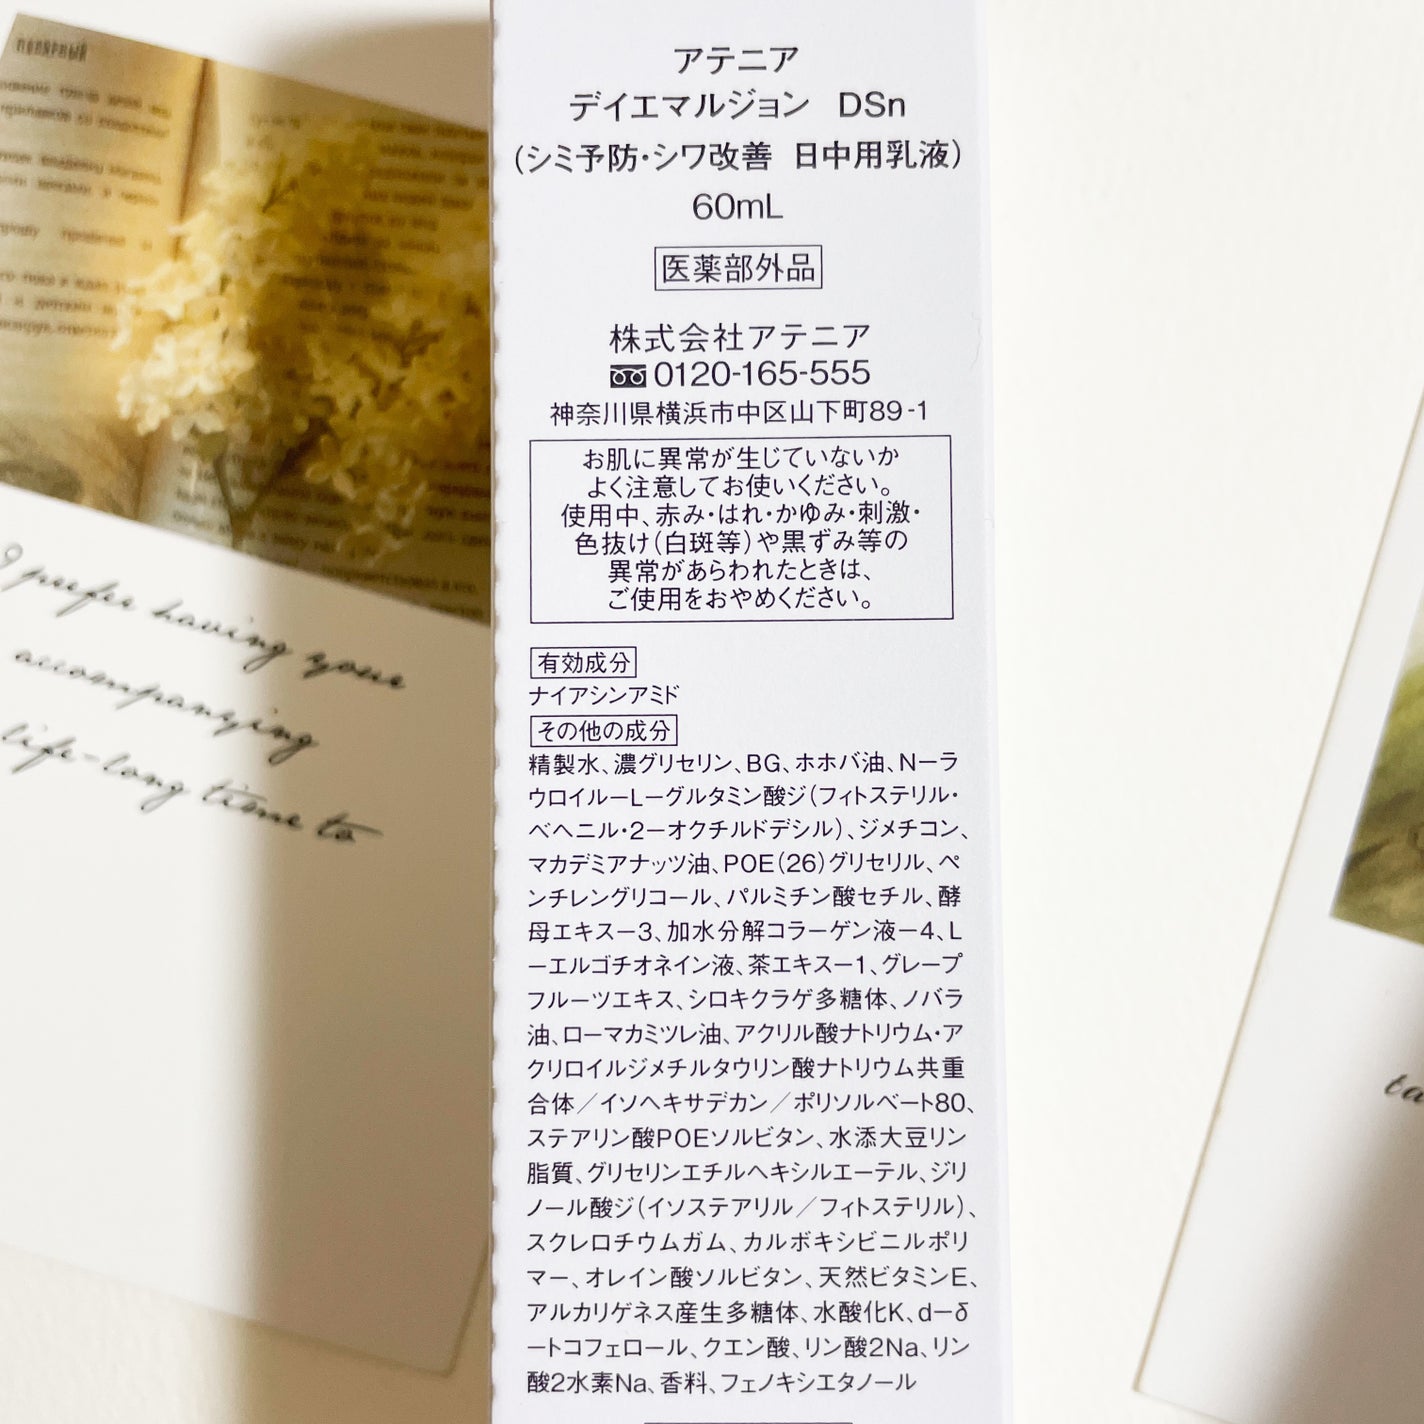 アテニア
デイエマルジョン DSn
(シミ予防・シワ改善 日中用乳液)
60mL
医薬部外品
株式会社アテニア
0120-165-555
神奈川県横浜市中区山下町89-1
お肌に異常が生じていないか
よく注意してお使いください。
使用中、赤み・はれ・かゆみ・刺激・
色抜け(白斑等)や黒ずみ等の
異常があらわれたときは、
ご使用をおやめください。
有効成分
ナイアシンアミド
その他の成分
精製水、濃グリセリン、BG、ホホバ油、Nーラ
ウロイルーLーグルタミン酸ジ(フィトステリル・
ベヘニル・2ーオクチルドデシル)、ジメチコン、
マカデミアナッツ油、POE(26)グリセリル、ペ
ンチレングリコール、パルミチン酸セチル、酵
母エキスー3、加水分解コラーゲン液ー4、L
ーエルゴチオネイン液、茶エキスー1、グレープ
フルーツエキス、シロキクラゲ多糖体、ノバラ
油、ローマカミツレ油、アクリル酸ナトリウム・ア
クリロイルジメチルタウリン酸ナトリウム共重
合体/イソヘキサデカン/ポリソルベート80、
ステアリン酸POEソルビタン、水添大豆リン
脂質、グリセリンエチルヘキシルエーテル、ジリ
ノール酸ジ(イソステアリル/フィトステリル)、
スクレロチウムガム、カルボキシビニルポリ
マー、オレイン酸ソルビタン、天然ビタミンE、
アルカリゲネス産生多糖体、水酸化K、dーδ
ートコフェロール、クエン酸、リン酸2Na、リン
酸2水素Na、香料、フェノキシエタノール
I prefer having your
accompanying
life-long time to
ta